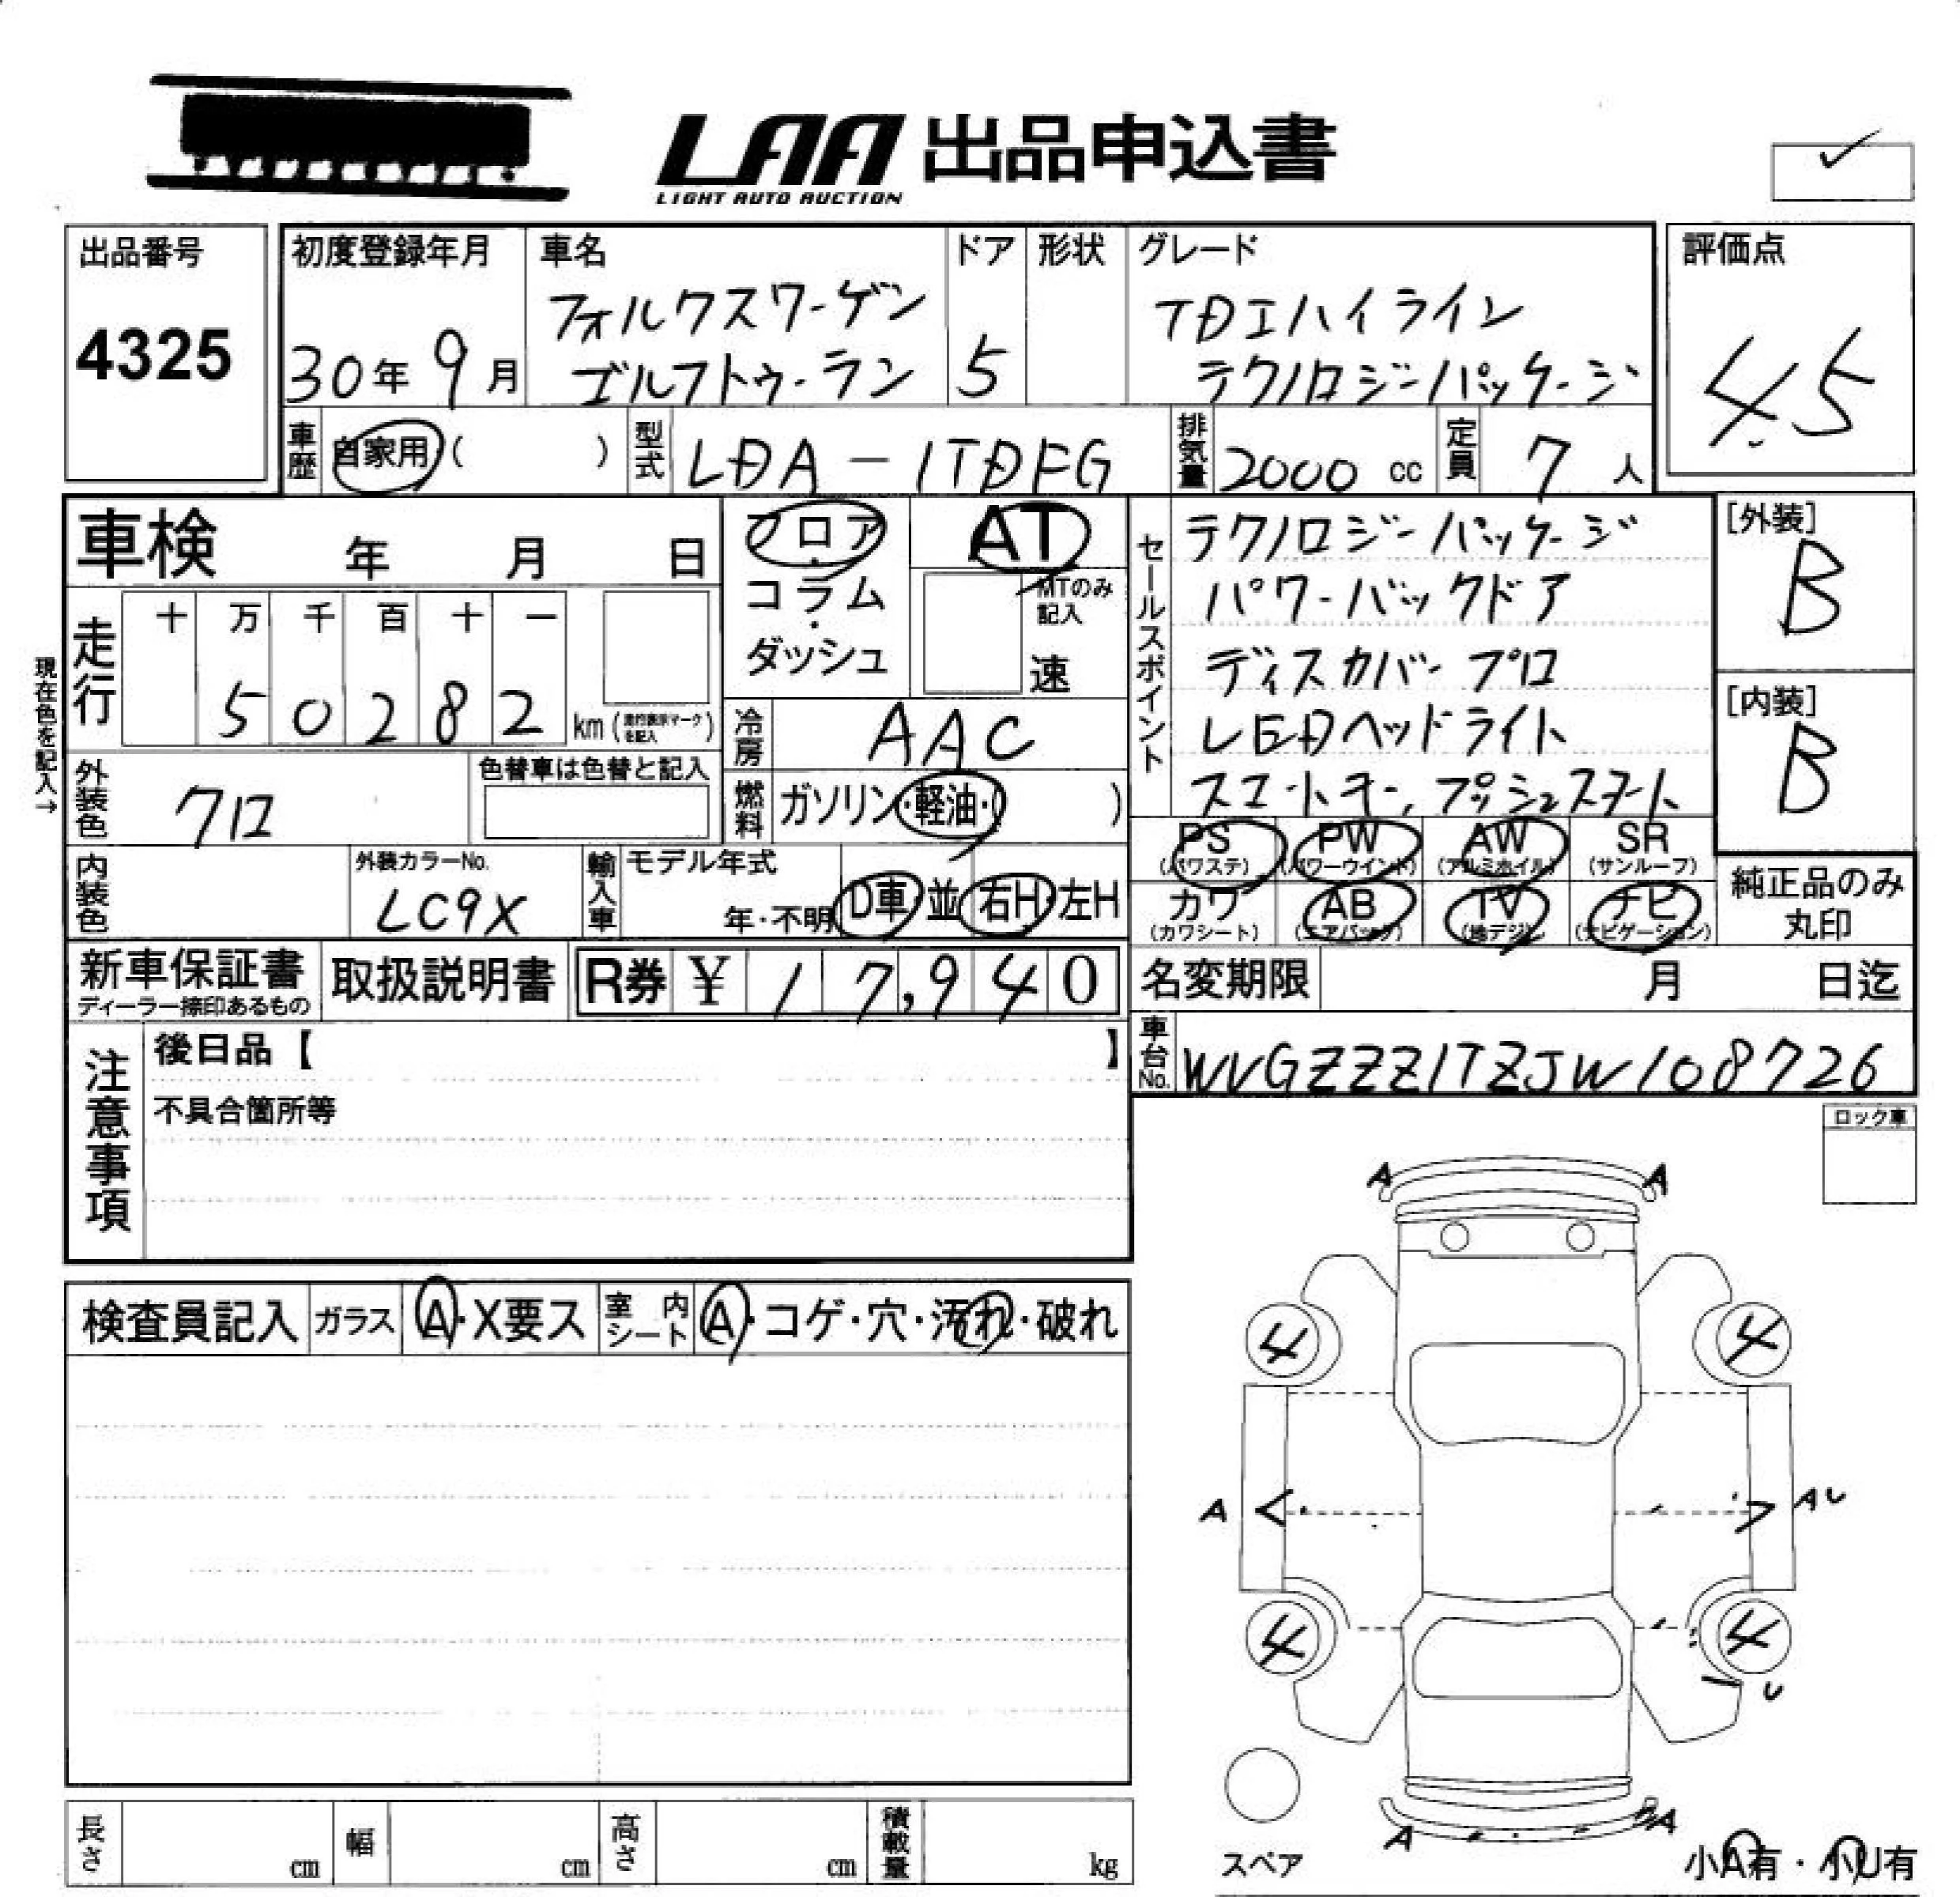 LAA 出品申込書
LIGHT AUTO AUCTION
出品番号
4325
初度登録年月
30年 9月
車名
フォルクスワーゲン
ゴルフトゥーラン
ドア
5
形状
グレード
TDIハイライン
テクノロジーパッケージ
評価点
4.5
車歴 自家用 ( )
型式 LDA-1TDFG
排気量 2000 cc
定員 7 人
車検 年 月 日
走行
十 万 千 百 十 一
5 0 2 8 2 km (走行表示マークを記入)
現在色を記入→
外装色 クロ
色替車は色替と記入
内装色
外装カラーNo.
LC9X
フロア・
コラム・
ダッシュ
AT
MTのみ
記入
速
冷房 AAC
燃料 ガソリン・軽油・( )
輸入車 モデル年式
年・不明 D車 並 右H・左H
セールスポイント
テクノロジーパッケージ
パワーバックドア
ディスカバープロ
LEDヘッドライト
スマートキー, プッシュスタート
[外装]
B
[内装]
B
PS (パワステ)
PW (パワーウインド)
AW (アルミホイル)
SR (サンルーフ)
カワ (カワシート)
AB (エアバック)
TV (地デジ)
ナビ (ナビゲーション)
純正品のみ
丸印
新車保証書
ディーラー捺印あるもの
取扱説明書
R券 ¥ 17,940
名変期限 月 日迄
車台No. WVGZZZ1TZJW108726
注意事項
後日品【 】
不具合箇所等
ロック車
検査員記入 ガラス A・X要ス 室内シート A・コゲ・穴・汚れ・破れ
A A
4 4
A AU
4 4
U
A A
スペア
小A有・小U有
長さ cm 幅 cm 高さ cm 積載量 kg